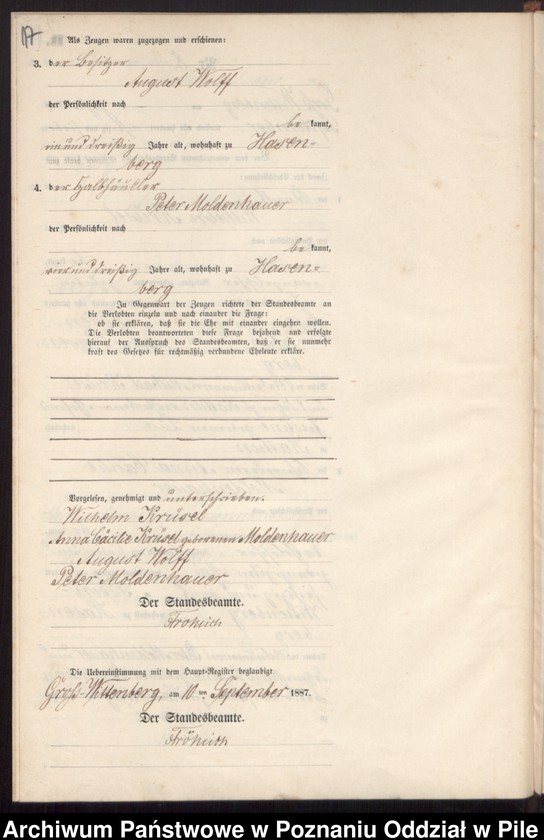 17
Als Zeugen waren zugezogen und erschienen:
3. der Besitzer
August Wolff
der Persönlichkeit nach
be kannt,
einunddreißig Jahre alt, wohnhaft zu Hasen-
berg
4. der Halbhäusler
Peter Moldenhauer
der Persönlichkeit nach
be kannt,
vierunddreißig Jahre alt, wohnhaft zu Hasen-
berg
In Gegenwart der Zeugen richtete der Standesbeamte an
die Verlobten einzeln und nach einander die Frage:
ob sie erklären, daß sie die Ehe mit einander eingehen wollen.
Die Verlobten beantworteten diese Frage bejahend und erfolgte
hierauf der Ausspruch des Standesbeamten, daß er sie nunmehr
kraft des Gesetzes für rechtmäßig verbundene Eheleute erkläre.
Vorgelesen, genehmigt und unterschrieben.
Wilhelm Krüsel
Anna Cäcilie Krüsel geborenen Moldenhauer
August Wolff
Peter Moldenhauer
Der Standesbeamte.
Fröhlich
Die Uebereinstimmung mit dem Haupt-Register beglaubigt
Groß-Wittenberg, am 10 ten September 1887.
Der Standesbeamte.
Fröhlich
Archiwum Państwowe w Poznaniu Oddział w Pile